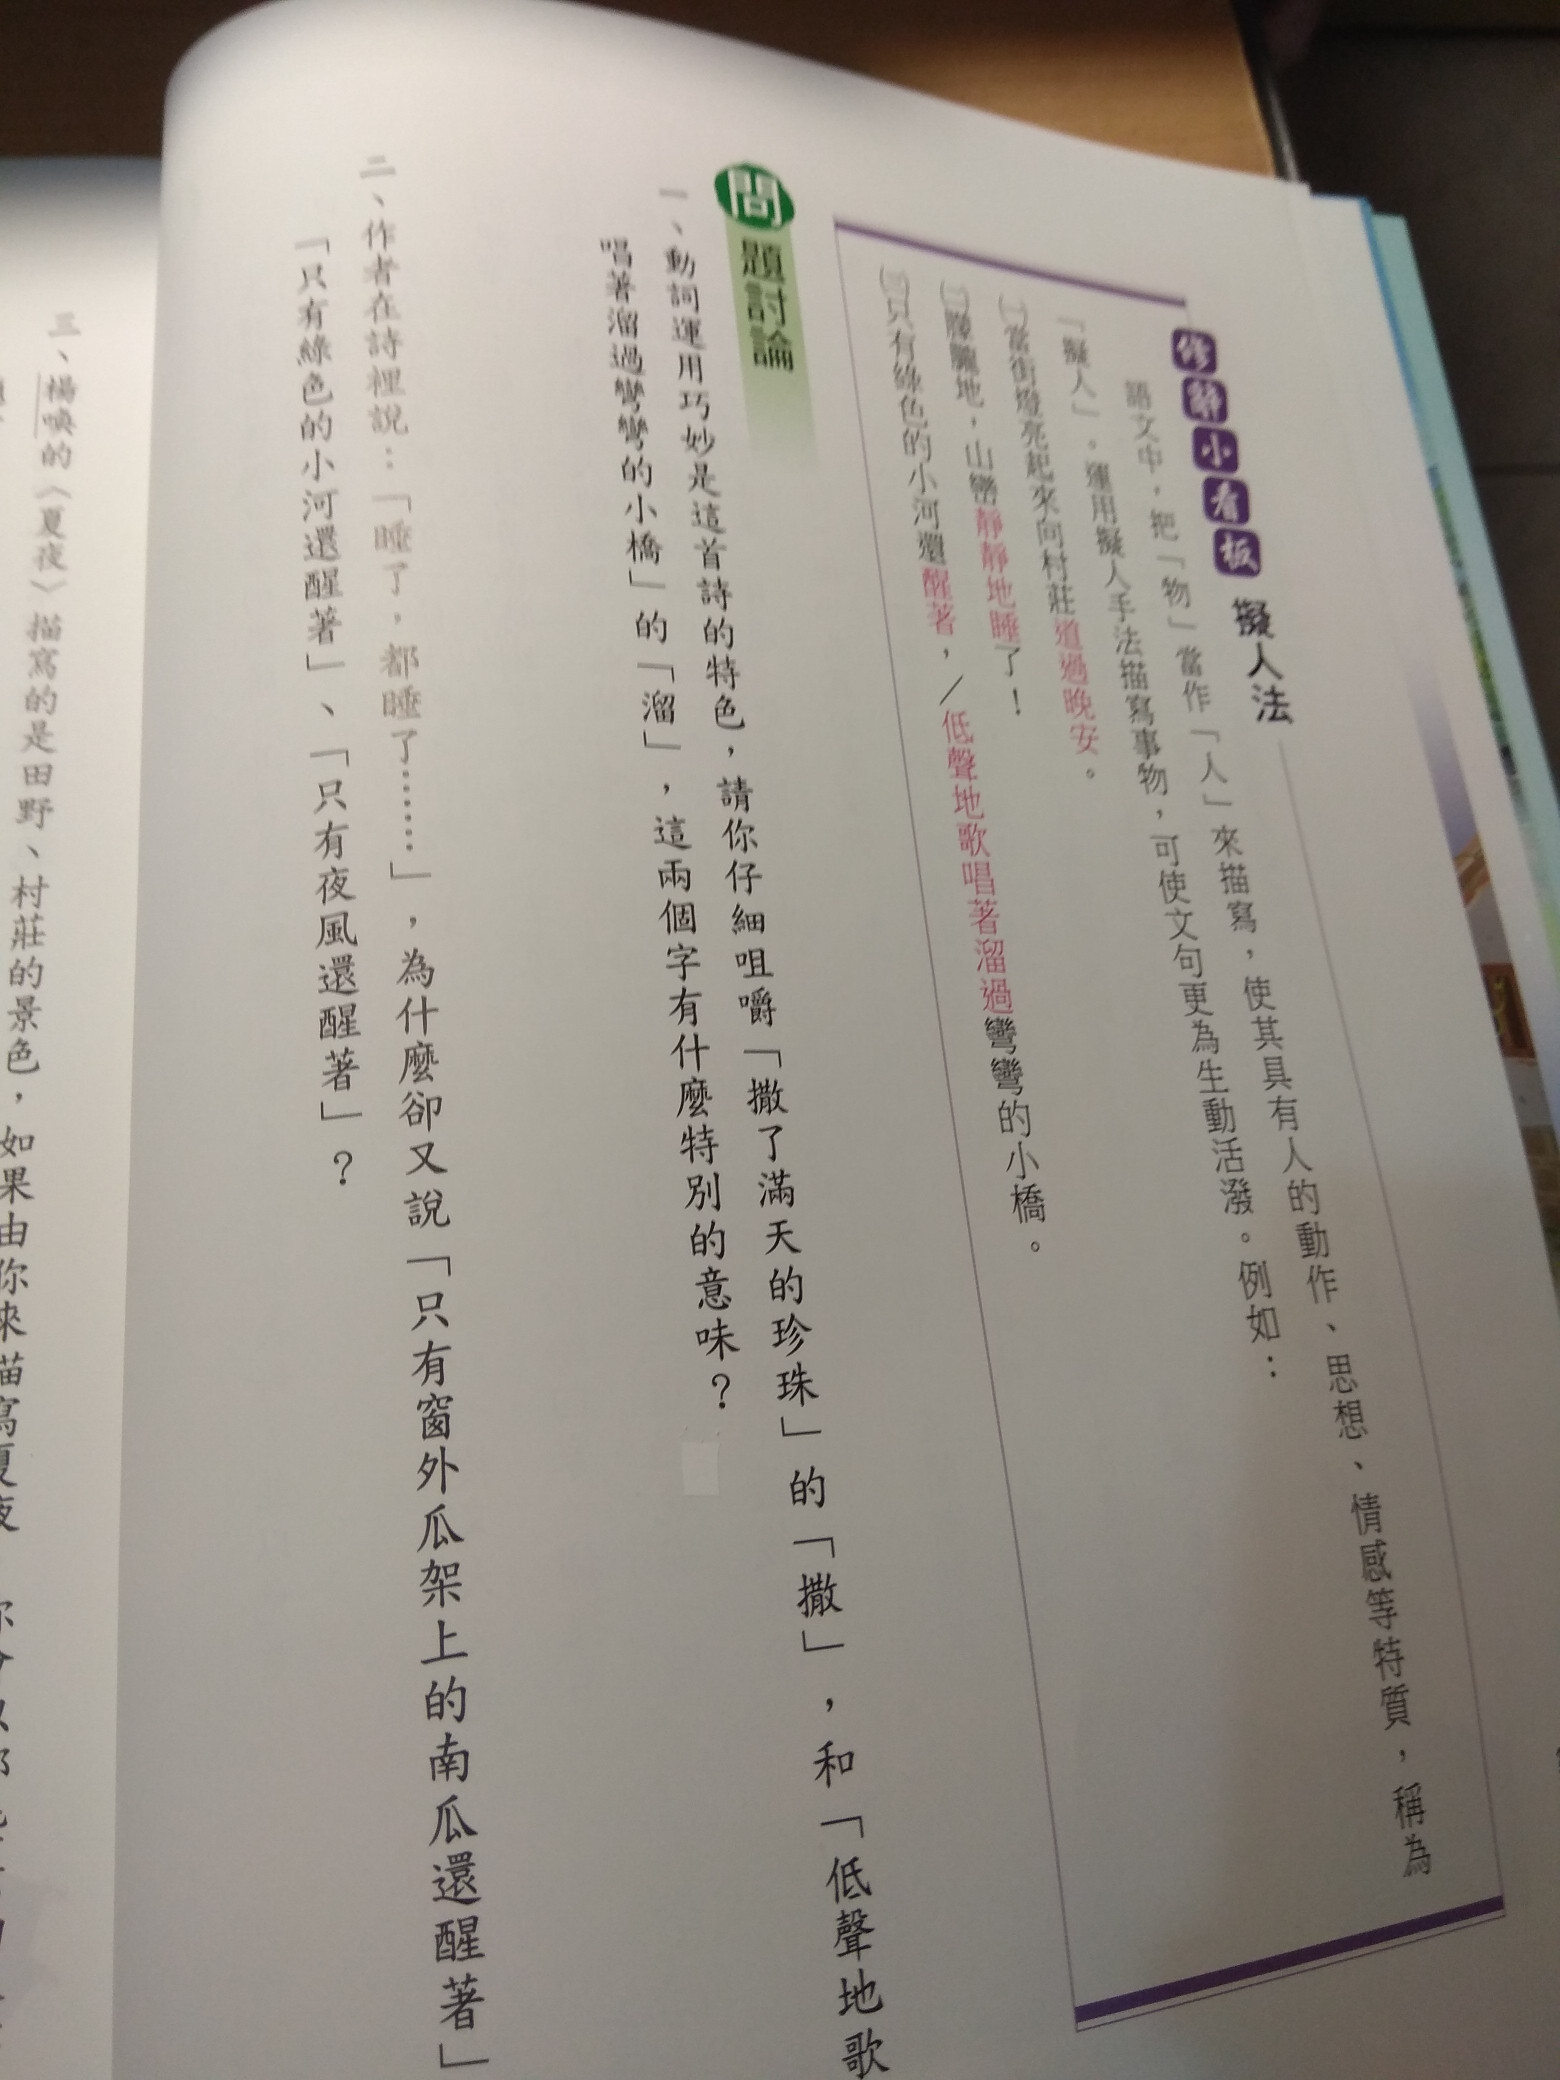 修辭小看板 擬人法
語文中，把「物」當作「人」來描寫，使其具有人的動作、思想、情感等特質，稱為
「擬人」。運用擬人手法描寫事物，可使文句更為生動活潑。例如：
㈠當街燈亮起來向村莊道過晚安。
㈡朦朧地，山巒靜靜地睡了！
㈢只有綠色的小河還醒著，／低聲地歌唱著溜過彎彎的小橋。
問題討論
一、動詞運用巧妙是這首詩的特色，請你仔細咀嚼「撒了滿天的珍珠」的「撒」，和「低聲地歌
唱著溜過彎彎的小橋」的「溜」，這兩個字有什麼特別的意味？
二、作者在詩裡說：「睡了，都睡了……」，為什麼卻又說「只有窗外瓜架上的南瓜還醒著」
「只有綠色的小河還醒著」、「只有夜風還醒著」？
三、楊喚的〈夏夜〉描寫的是田野、村莊的景色，如果由你來描寫夏夜